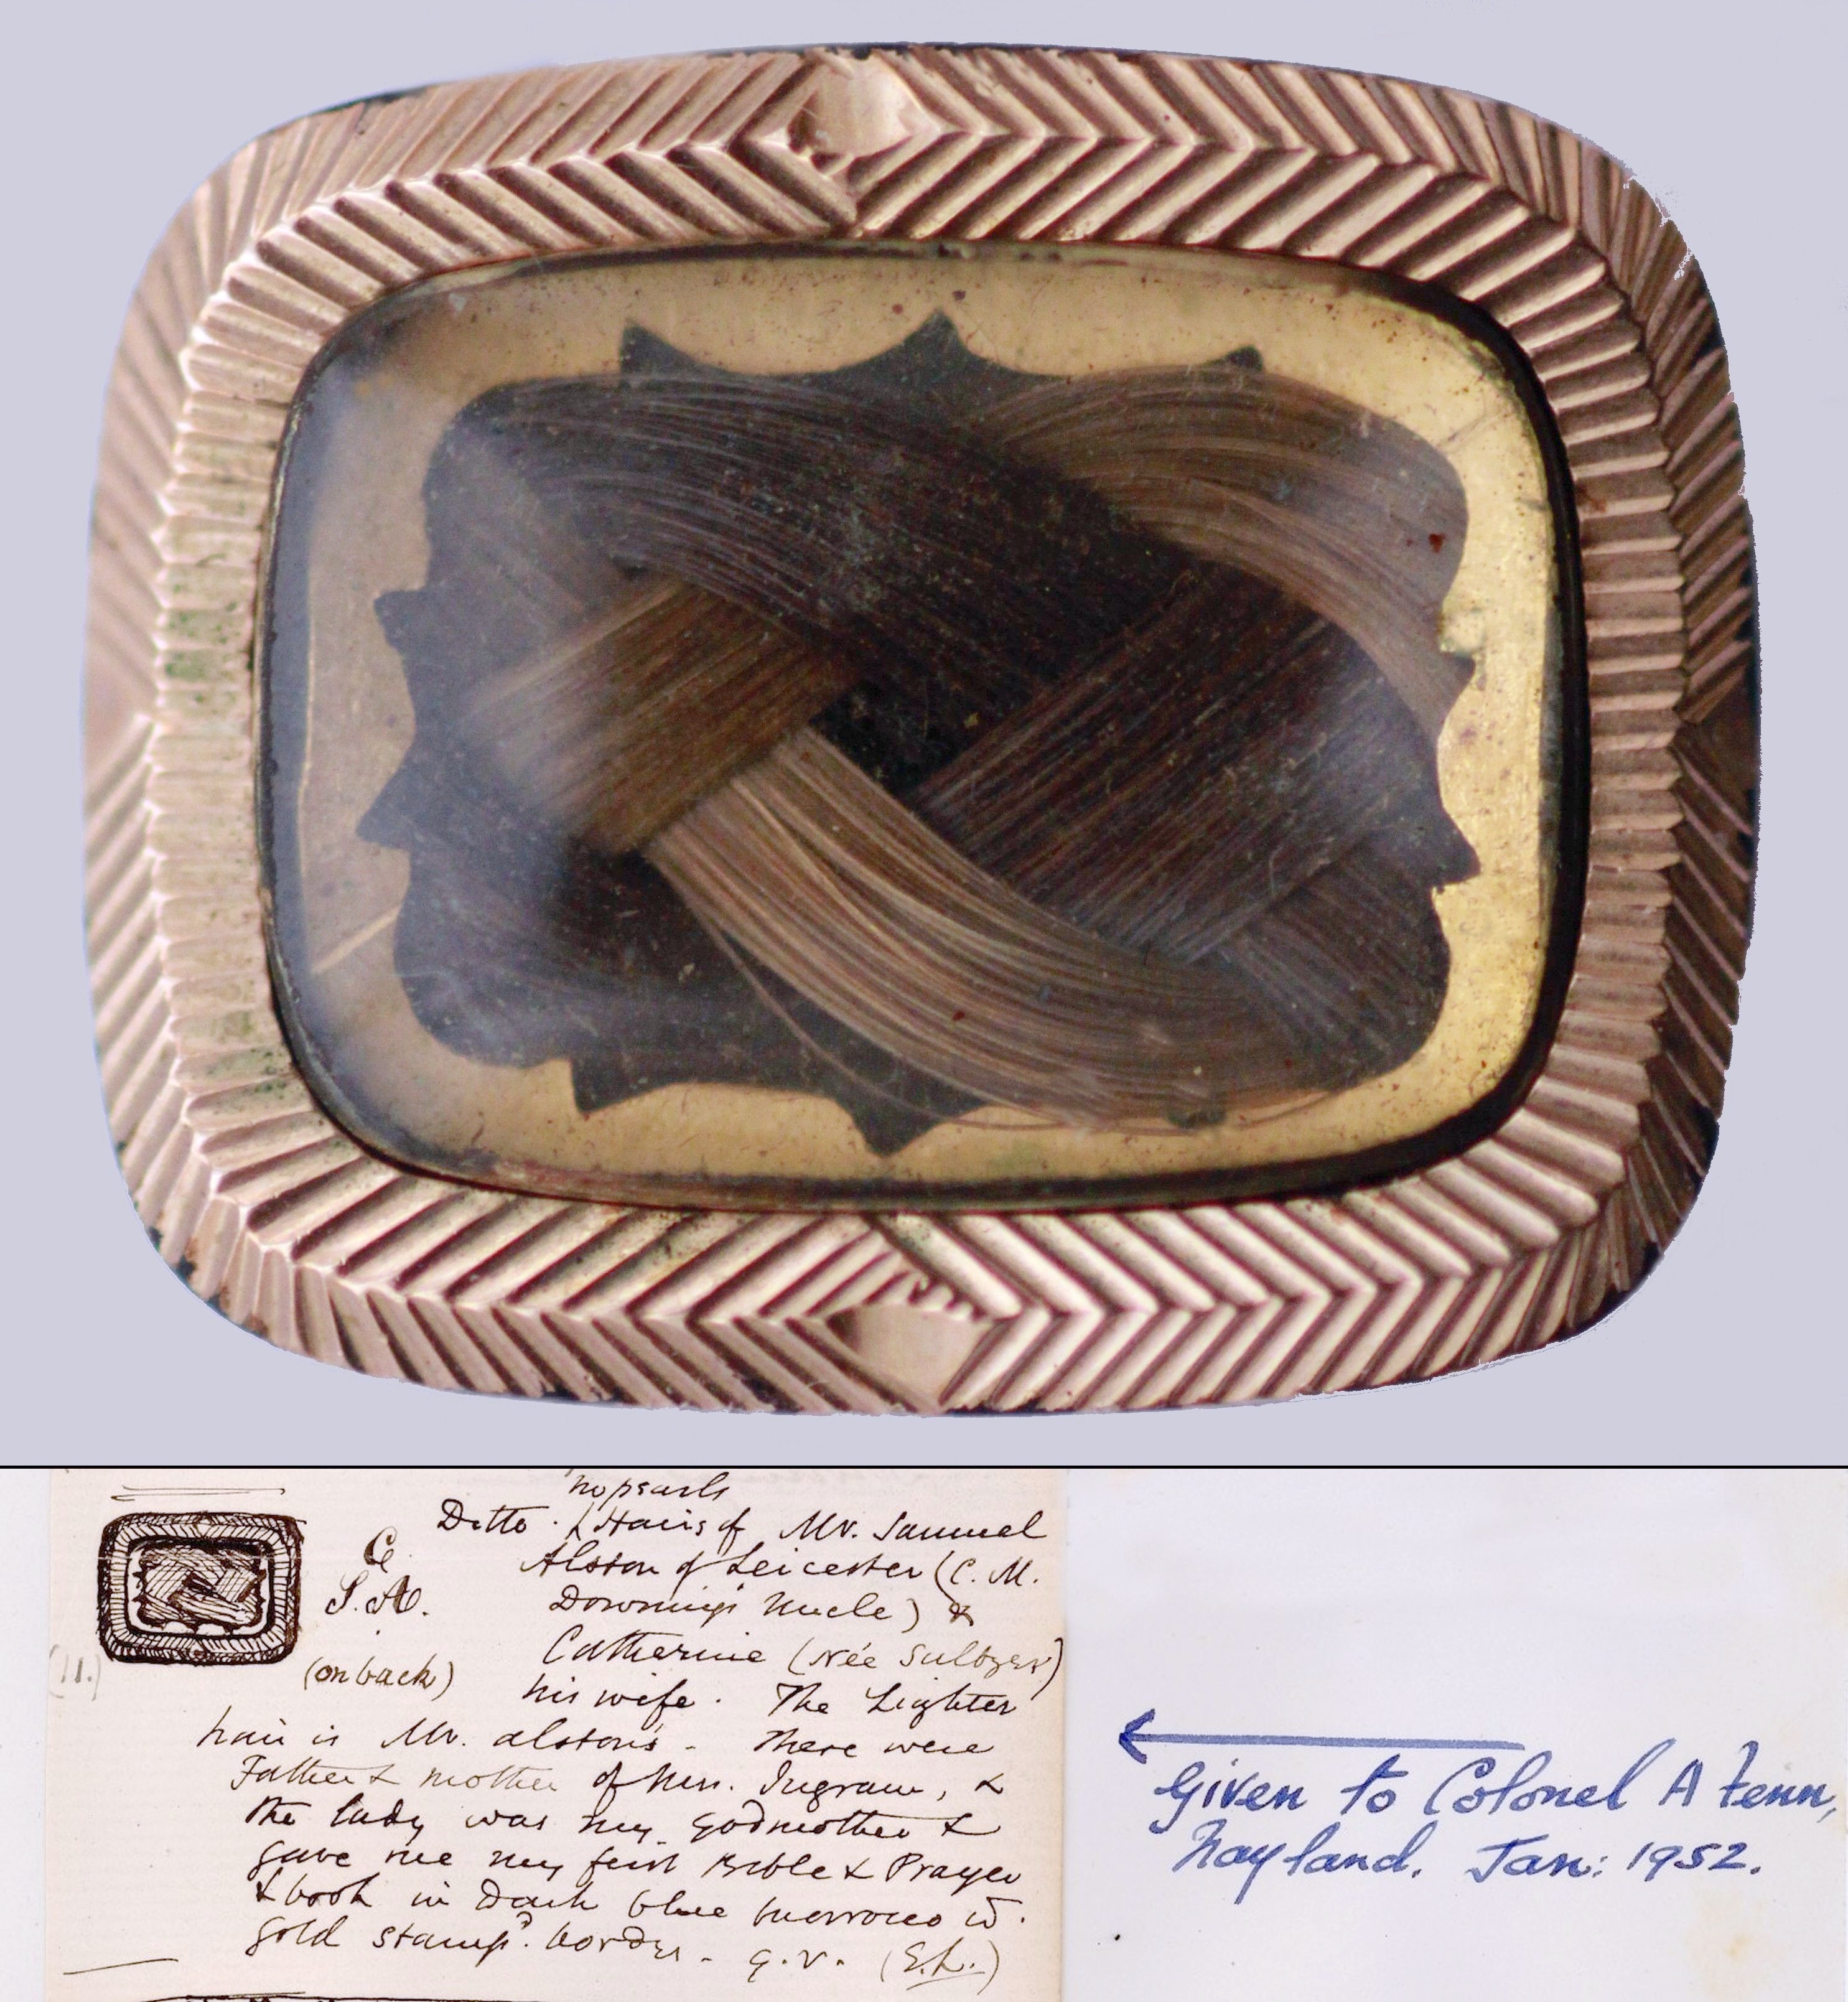 no pearls
Ditto. (Hairs of Mr. Samuel
Alston of Leicester (C. M.
Downing's Uncle) &
Catherine (née Sultzer)
his wife. The Lighter
hair is Mr. Alston's - There were
Father & mother of Mrs. Ingram, &
the lady was my Godmother &
gave me my first Bible & Prayer
& book in Dark blue morocco w.
gold stamp.d border - q.v. (E.L.)
C
S. A.
(on back)
(11.)
Given to Colonel A Fenn,
Nayland. Jan: 1952.